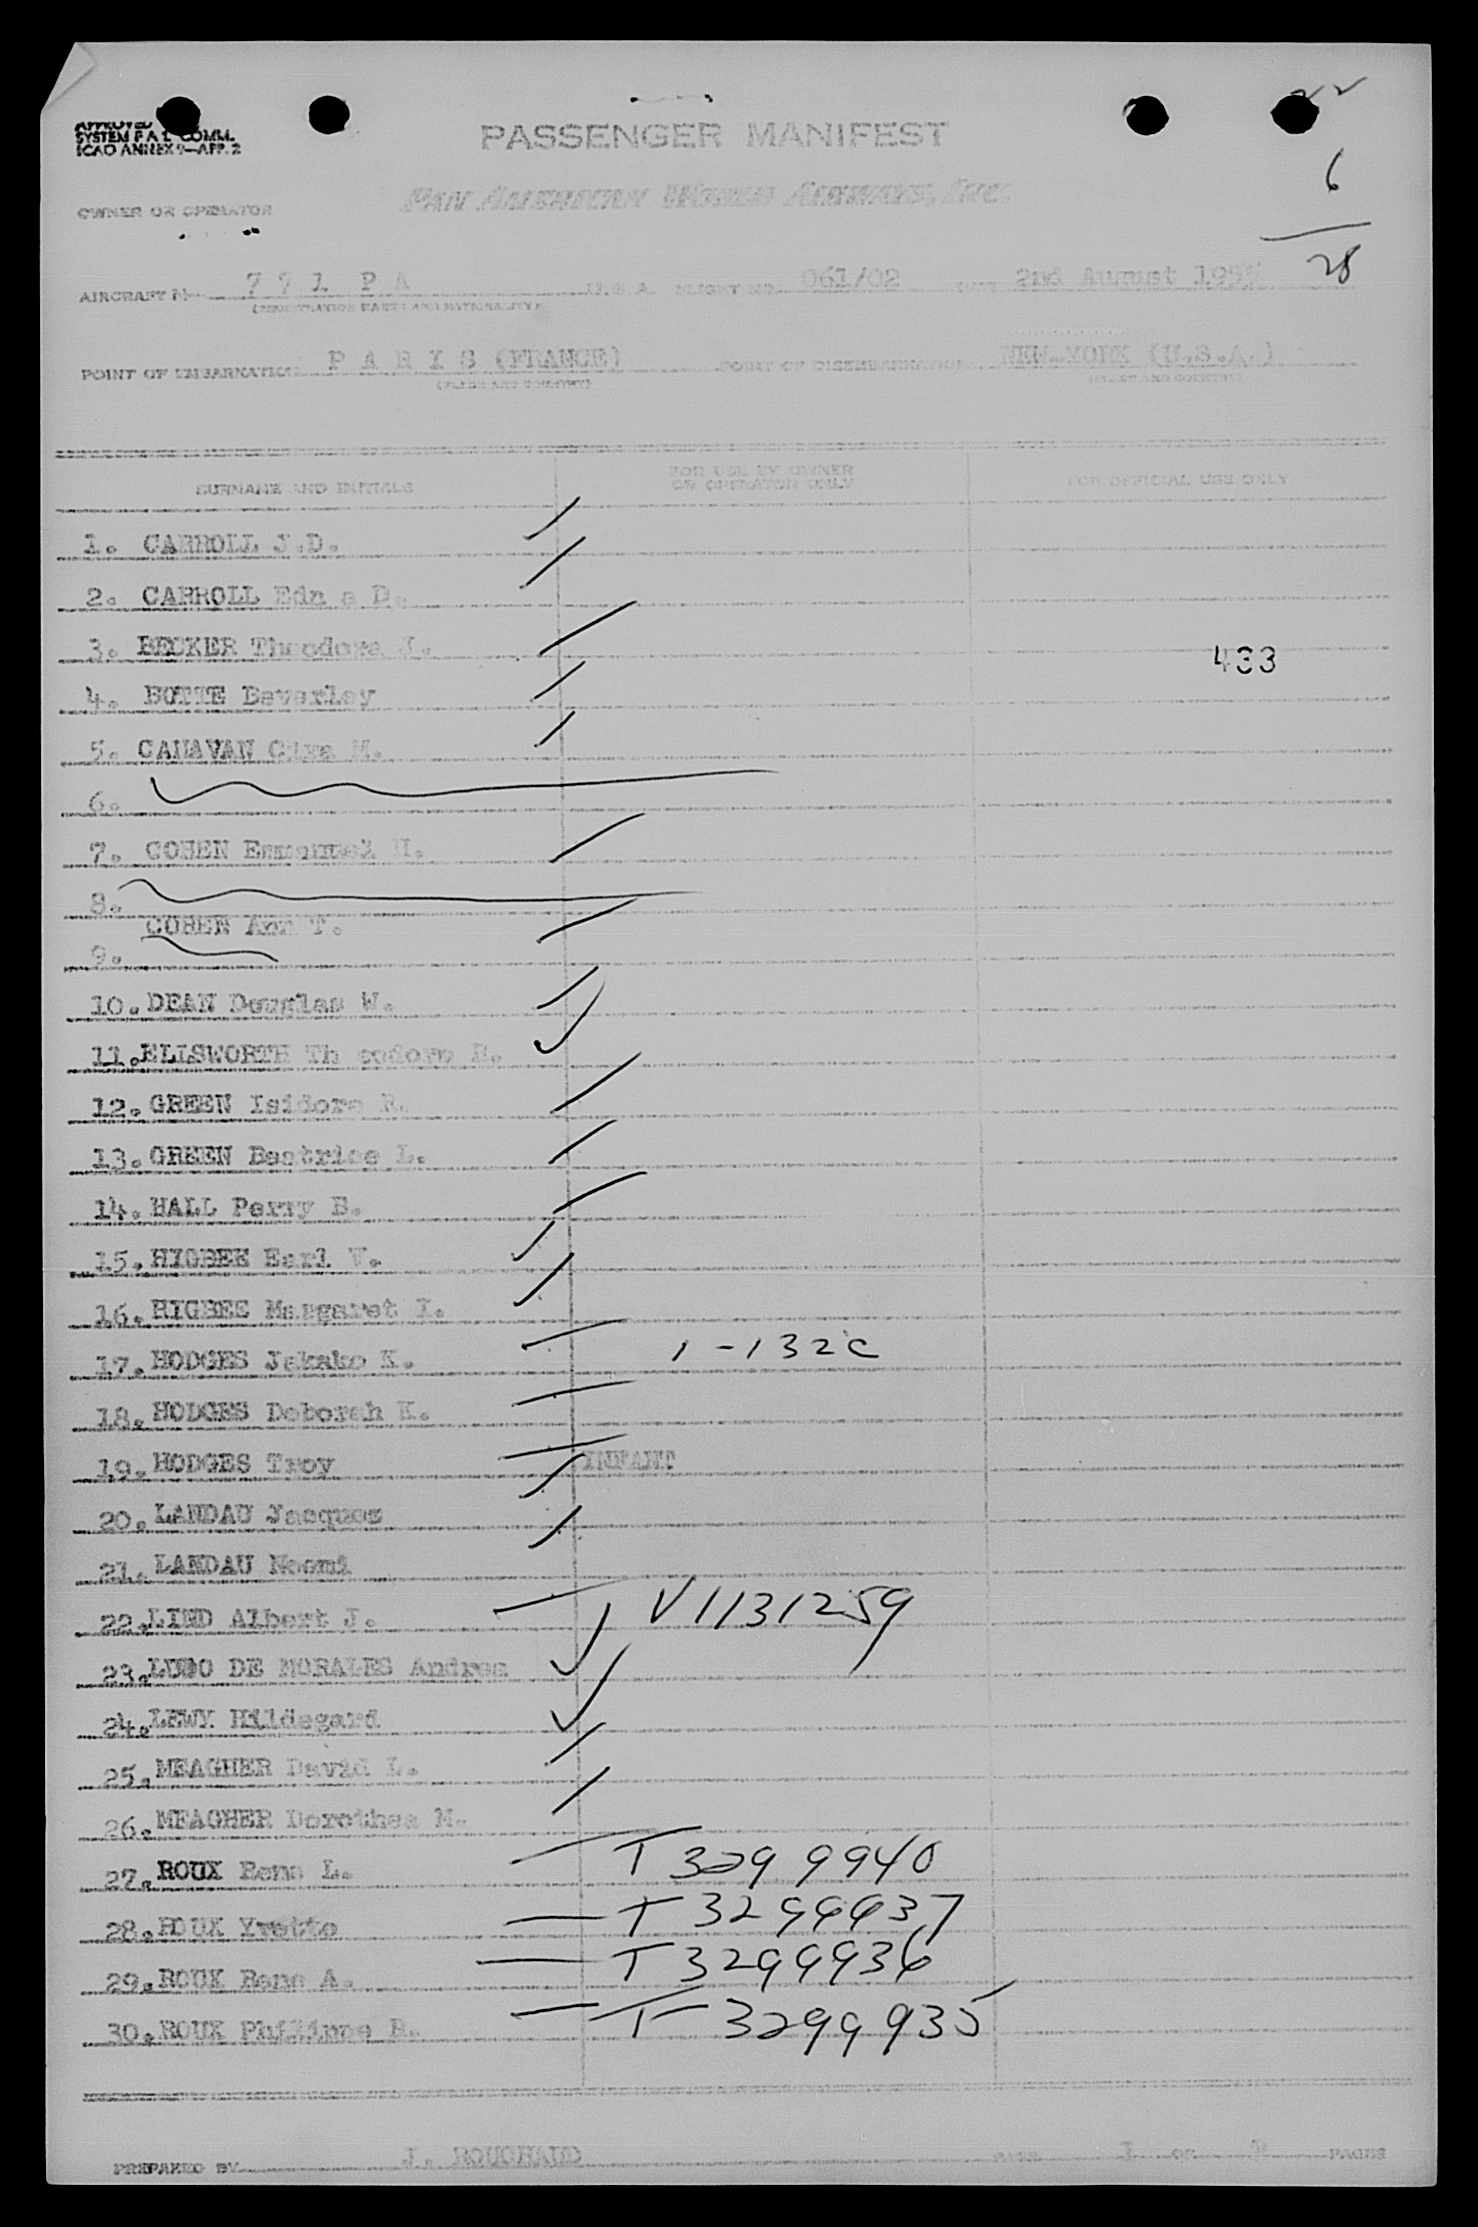 22
APPROVED
SYSTEM F A L COMM.
ICAO ANNEX 9—APP. 2
PASSENGER MANIFEST
6
PAN AMERICAN WORLD AIRWAYS, INC.
OWNER OR OPERATOR
28
AIRCRAFT 7 7 1 P A U.S.A. FLIGHT NO. 061/02 2nd August
POINT OF EMBARKATION P A R I S (FRANCE) POINT OF DISEMBARKATION NEW-YORK (U.S.A.)
(PLACE AND COUNTRY) (PLACE AND COUNTRY)
SURNAME AND INITIALS FOR USE BY OWNER OR OPERATOR ONLY FOR OFFICIAL USE ONLY
1. CARROLL J.D.
2. CARROLL Edn a D.
3. BECKER Theodore J. 433
4. BOTTE Beverley
5. CANAVAN M.
6.
7. COHEN Emmanuel H.
8.
COHEN Ann T.
9.
10. DEAN Douglas W.
11. ELLSWORTH Th eodore R.
12. GREEN Isidore R.
13. GREEN Beatrice L.
14. HALL Perry B.
15. HIGBEE Earl V.
16. HIGBEE Margaret I.
17. HODGES Jakako K. 1-132c
18. HODGES Deborah K.
19. HODGES Troy INFANT
20. LANDAU Jacques
21. LANDAU Noemi
22. LIND Albert J. V1131259
23. LUGO DE MORALES Andrea
24. LEWY Hildegard
25. MEAGHER David L.
26. MEAGHER Dorothea M.
27. ROUX Rene L. T 3299940
28. ROUX Yvette T 3299937
29. ROUX Rene A. T 3299936
30. ROUX Philippe B. T 3299935
PREPARED BY J. ROUCHAUD PAGE 1 OF PAGES